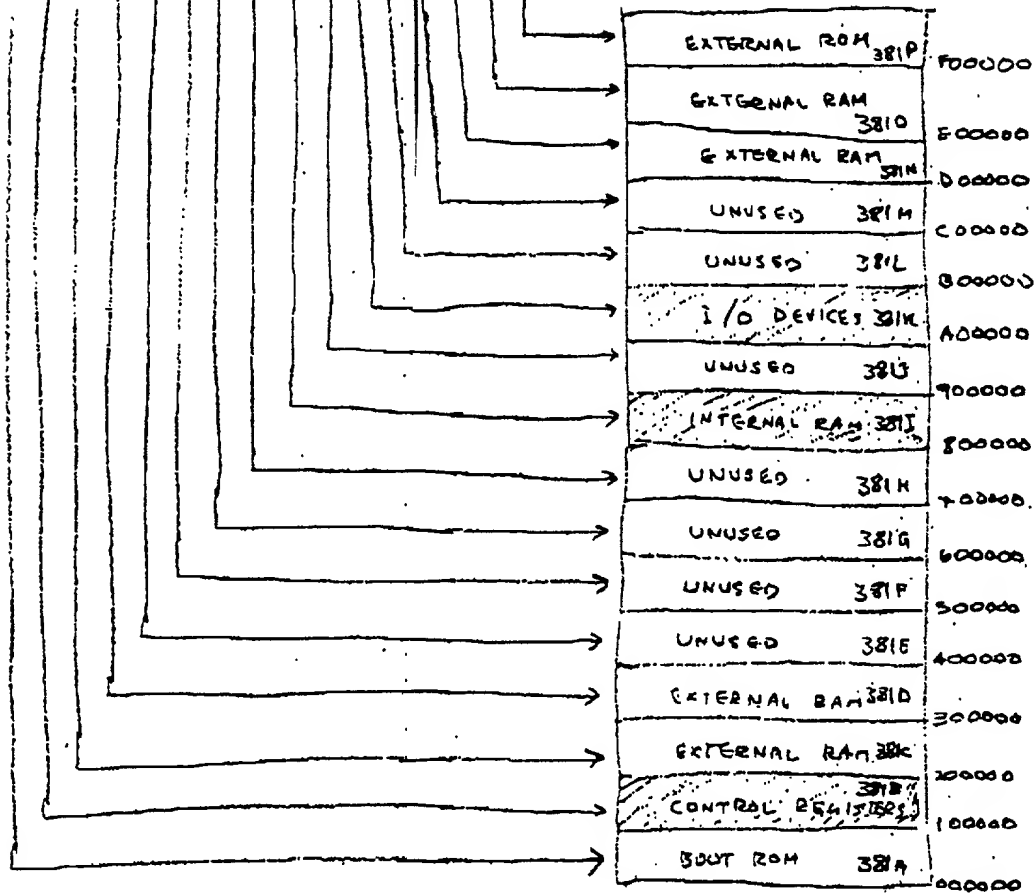 EXTERNAL ROM 381P
F00000
EXTERNAL RAM
381O
E00000
EXTERNAL RAM 381N
D00000
UNUSED 381M
C00000
UNUSED 381L
B00000
I/O DEVICES 381K
A00000
UNUSED 381J
900000
INTERNAL RAM 381I
800000
UNUSED 381H
700000
UNUSED 381G
600000
UNUSED 381F
500000
UNUSED 381E
400000
EXTERNAL RAM 381D
300000
EXTERNAL RAM 381C
200000
381B
CONTROL REGISTERS
100000
BOOT ROM 381A
000000